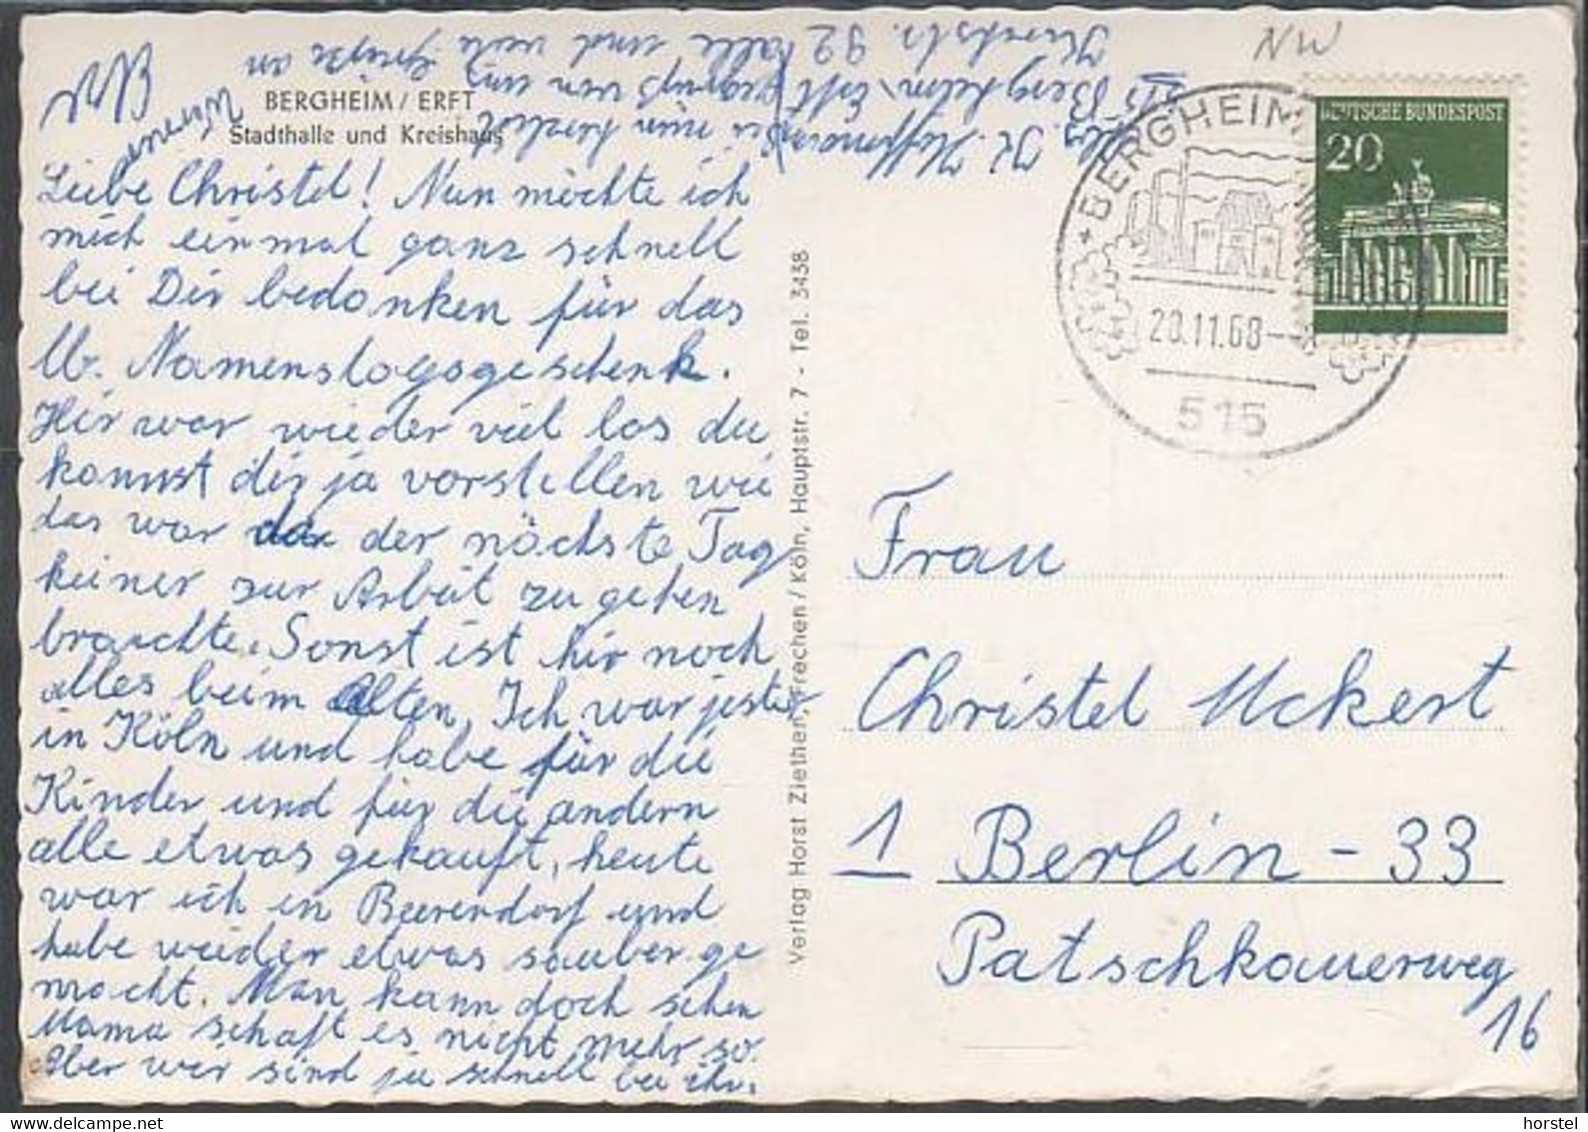 NW
BERGHEIM / ERFT
Stadthalle und Kreishaus
Liebe Christel! Nun möchte ich
mich einmal ganz schnell
bei Dir bedanken für das
lb. Namenstagsgeschenk.
Hir war wieder viel los du
kannst dir ja vorstellen wie
das war der nächste Tag
keiner zur Arbeit zu gehen
brauchte. Sonst ist hir noch
alles beim Alten. Ich war jester
in Köln und habe für die
Kinder und für die andern
alle etwas gekauft, heute
war ich in Beerendorf und
habe wieder etwas sauber ge
macht. Man kann doch sehen
Mama schaft es nicht mehr so.
Aber wir sind ja schnell bei ihr.
Nun sei herzlich
gegrüßt von uns
alle und viele Grüße an
Abs. K. Hoffmann
515 Bergheim/Erft
92
Verlag Horst Ziethen, Frechen / Köln, Hauptstr. 7 - Tel. 3438
BERGHEIM
20.11.68
515
DEUTSCHE BUNDESPOST
20
Frau
Christel Uckert
1 Berlin - 33
Patschkauerweg
16
horstel